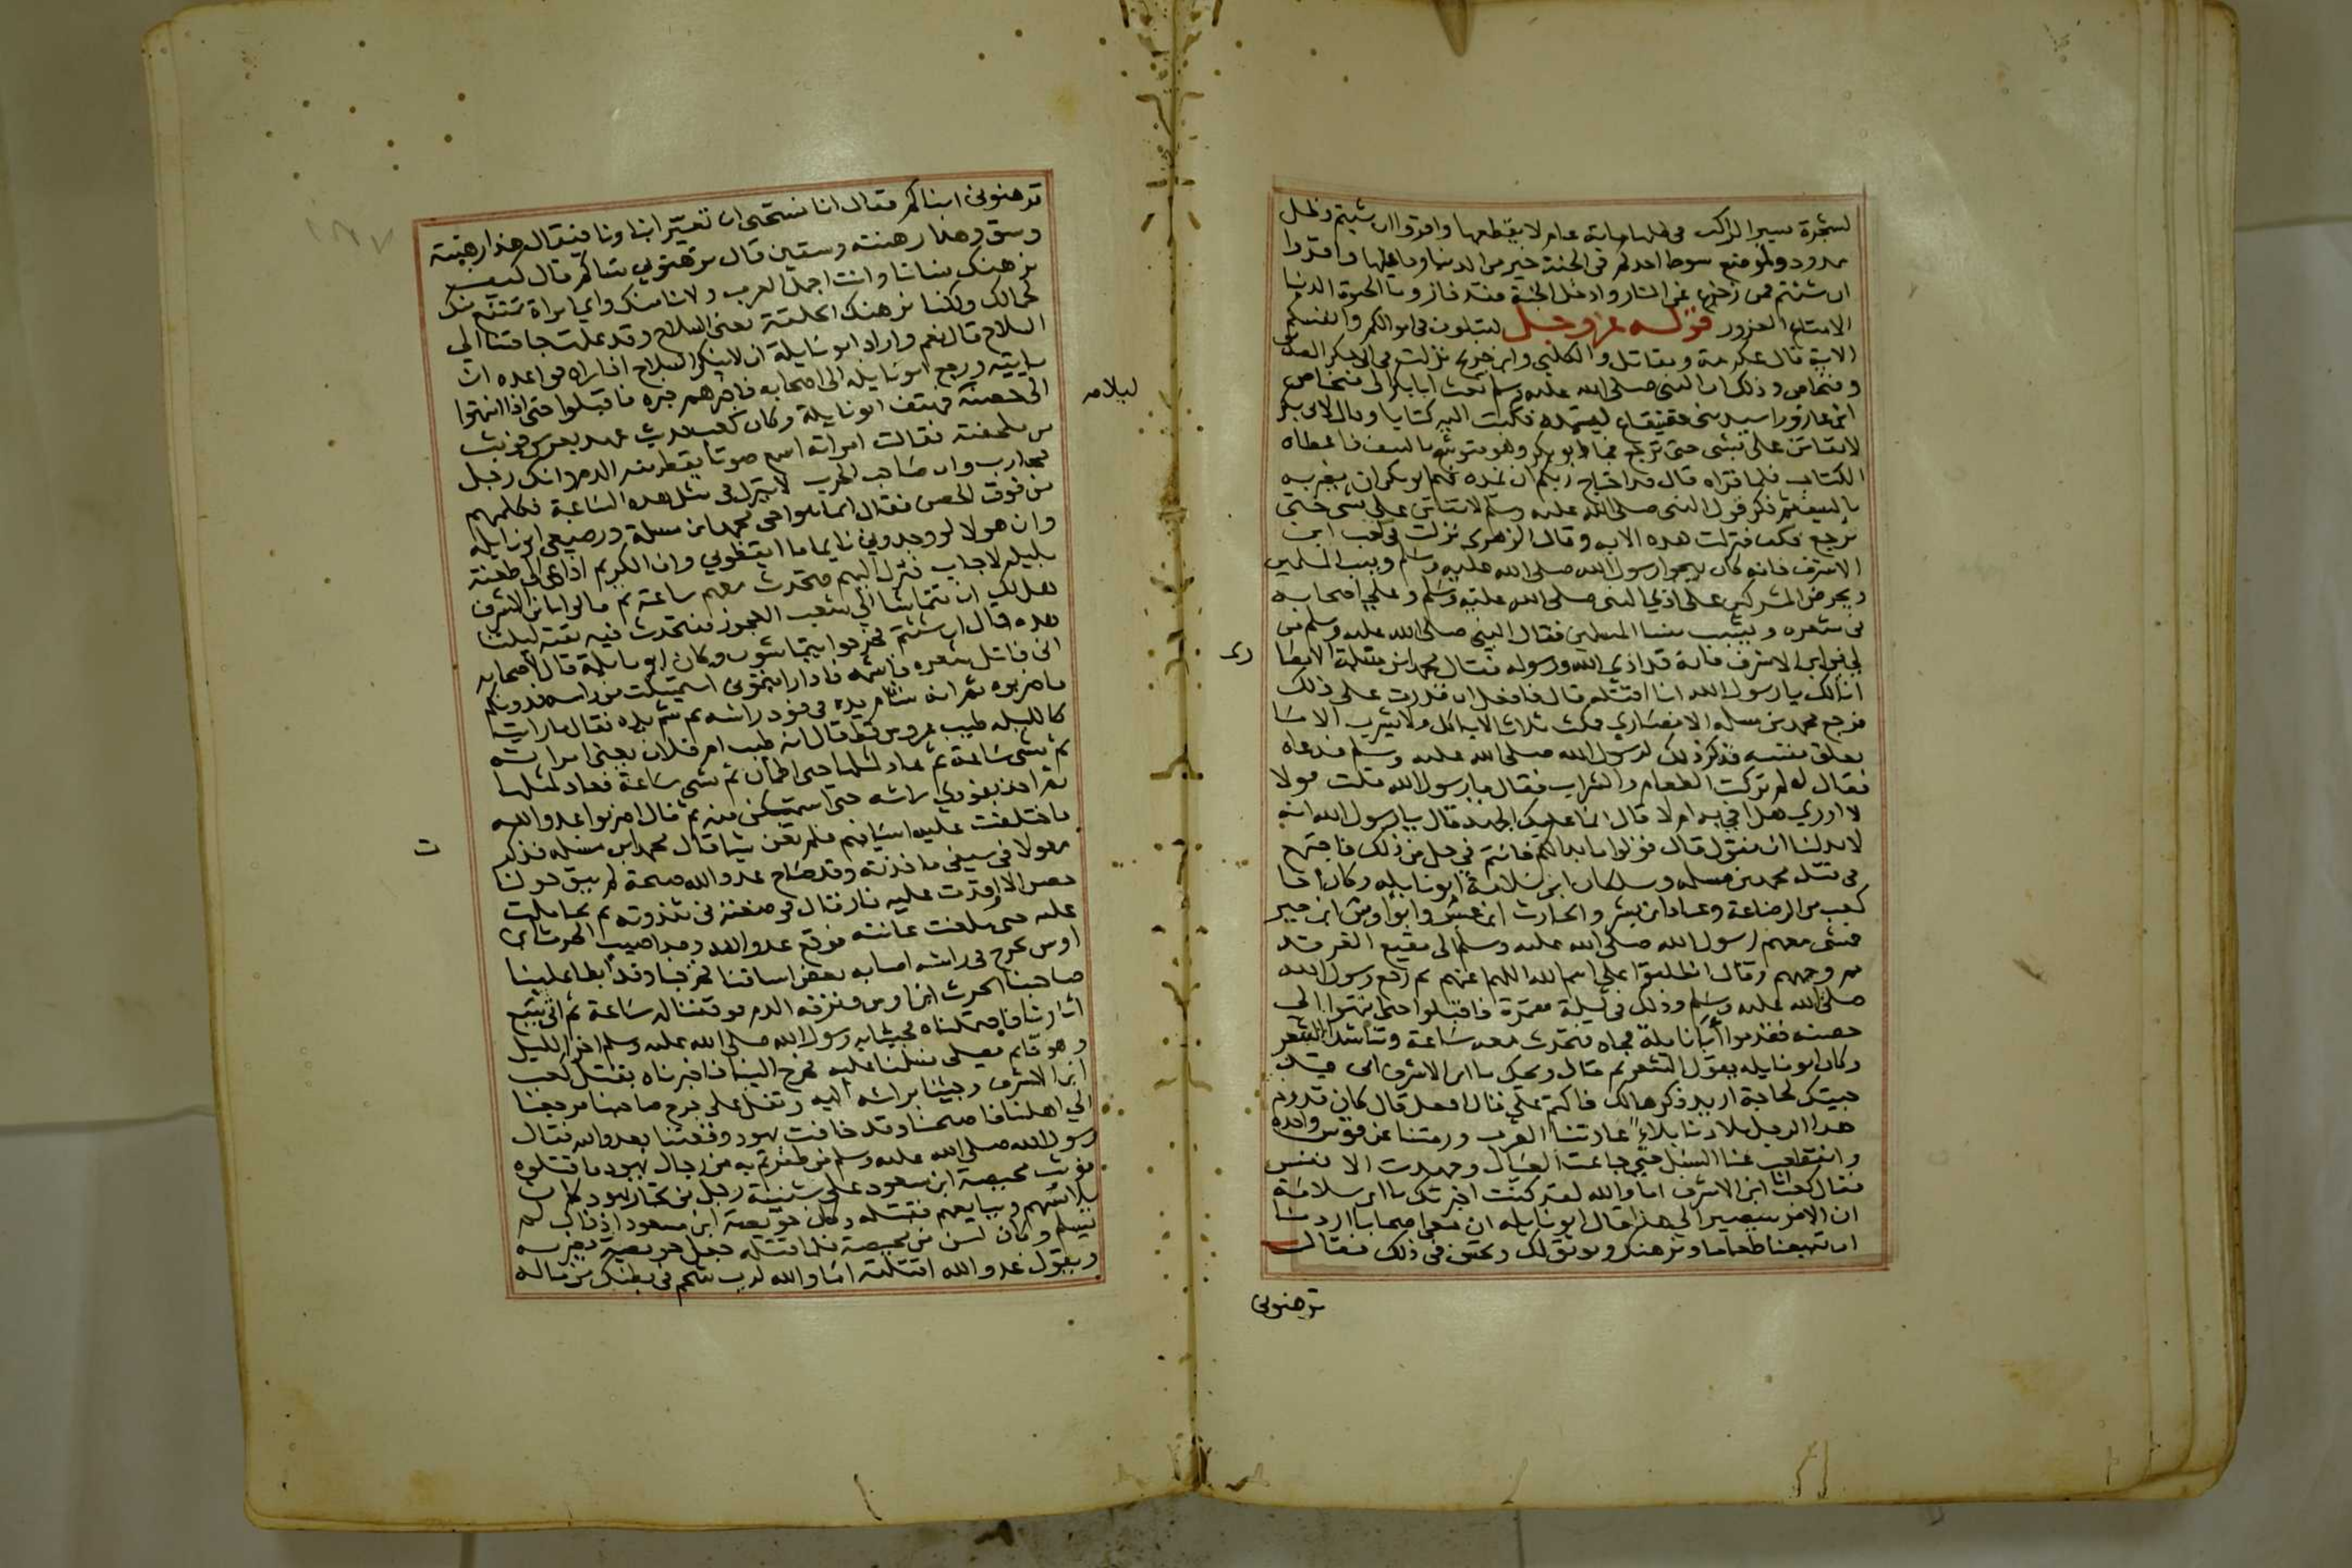 لشجرة يسير الراكب في ظلها ماية عام لا يقطعها واقروا ان شيتم وظل
ممدود ولموضع سوط احدكم في الجنة خير من الدنيا وما فيها واقروا
ان شئتم فمن زحزح عن النار وادخل الجنة فقد فاز وما الحيوة الدنيا
الا متاع الغرور قوله عز وجل لتبلون في اموالكم وانفسكم
الاية قال عكرمة ومقاتل والكلبي وابن جريج نزلت في ابي بكر الصديق
وفنحاص وذلك ان النبي صلى الله عليه وسلم بعث ابا بكر الى فنحاص
ابن عازورا سيد بني قينقاع ليستمده فكتب اليه كتابا وقال لابي بكر
لا تفتاتن علي بشي حتى ترجع فجا ابو بكر وهو متوشح بالسيف فاعطاه
الكتاب فلما قراه قال قد احتاج ربكم ان نمده فهم ابو بكر ان يضربه
بالسيف ثم ذكر قول النبي صلى الله عليه وسلم لا تفتاتن علي بشي حتى
ترجع فكف فنزلت هذه الاية وقال الزهري نزلت في كعب ابن
الاشرف فانه كان يهجو رسول الله صلى الله عليه وسلم ويسب المسلمين
ويحرض المشركين على اذي النبي صلى الله عليه وسلم وعلي اصحابه
في شعره ويشبب بنسا المسلمين فقال النبي صلى الله عليه وسلم من
لي بابن الاشرف فانه قد اذي الله ورسوله فقال محمد ابن مسلمة الانصا
ري
انا لك يا رسول الله انا اقتله قال فافعل ان قدرت على ذلك
فرجع محمد بن مسلمه الانصاري فمكث ثلاثا لا ياكل ولا يشرب الا ما
يعلق نفسه فذكر ذلك لرسول الله صلى الله عليه وسلم فدعاه
فقال له لم تركت الطعام والشراب فقال يا رسول الله قلت قولا
لا ادري هل افي به ام لا قال انما عليك الجهد قال يا رسول الله انه
لا بد لنا ان نقول قال قولوا ما بدا لكم فانتم في حل من ذلك فاجتمع
في قتله محمد بن مسلمه وسلكان ابن سلامة ابو نايله وكان اخا
كعب من الرضاعة وعباد ابن بشر والحارث ابن اوس وابو عبس ابن جبر
فمشى معهم رسول الله صلى الله عليه وسلم الى بقيع الغرقد
ثم وجههم وقال انطلقوا على اسم الله اللهم اعنهم ثم رجع رسول الله
صلى الله عليه وسلم وذلك في ليلة مقمرة فاقبلوا حتى انتهوا الى
حصنه فقدموا ابا نايلة فجاه فتحدث معه ساعة وتناشدا الشعر
وكان ابو نايله يقول الشعر ثم قال ويحك يا ابن الاشرف اني قد
جيتك لحاجة اريد ذكرها لك فاكتم علي قال افعل قال كان قدوم
هذا الرجل بلادنا بلاء عادتنا العرب ورمتنا عن قوس واحدة
وانقطعت عنا السبل حتى ضاعت العيال وجهدت الانفس
فقال كعب ابن الاشرف اما والله لقد كنت اخبرتك يا ابن سلامة
ان الامر سيصير الى هذا فقال ابو نايله ان معي اصحابا اردنا
ان تبيعنا طعاما ونرهنك ونوثق لك وتحسن في ذلك فقال
ترهنوني
ترهنوني ابناكم فقال انا نستحي ان تعير ابناونا فيقال هذا رهينة
وسق وهذا رهينة وسقين قال ترهنوني نساكم قال كيف
نرهنك نسانا وانت اجمل العرب ولا نامنك واي امراة تمتنع منك
لجمالك ولكنا نرهنك الحلقة يعني السلاح وقد علمت حاجتنا الى
السلاح قال نعم واراد ابو نايلة ان لا ينكر السلاح اذا راه فواعده ان
ياتيه ورجع ابو نايلة الى اصحابه فاخبرهم خبره فاقبلوا حتى اذا انتهوا
الى حصنه فهتف ابو نايلة وكان كعب حديث عهد بعرس فوثب
من ملحفته فقالت امراته اسمع صوتا يقطر منه الدم وانك رجل
محارب وان صاحب الحرب لا ينزل في مثل هذه الساعة فكلمهم
من فوق الحصن فقال انما هو اخي محمد ابن مسلمة ورضيعي ابو نايلة
وان هولا لو وجدوني نايما ما ايقظوني وان الكريم اذا دعي الى طعنة
بليل لاجاب فنزل اليهم فتحدث معهم ساعة ثم قالوا يا ابن الاشرف
هل لك ان نتماشا الى شعب العجوز فنتحدث فيه بقية ليلتنا
هذه قال ان شئتم فخرجوا يتماشون وكان ابو نايلة قال لاصحابه
اني فاتل شعره فاشمه فاذا رايتموني استمكنت من راسه فدونكم
فاضربوه ثم انه شام يده في فود راسه ثم شم يده فقال ما رايت
كالليله طيب عروس قط قال انه طيب ام فلان يعني امراته
ثم مشى ساعة ثم عاد لمثلها حتى اطمان ثم مشى ساعة فعاد لمثلها
ثم اخذ بفودي راسه حتى استمكن منه ثم قال اضربوا عدو الله
فاختلفت عليه اسيافهم فلم تغن شيا قال محمد ابن مسلمه فذكر
ت
مغولا في سيفي فاخذته وقد صاح عدو الله صيحة لم يبق حولنا
حصن الا اوقدت عليه نار فقال فوضعته في ثندوته ثم تحاملت
عليه حتى بلغت عانته فوقع عدو الله وقد اصيب الحرث ابن
اوس بجرح في راسه اصابه بعض اسيافنا فخرجنا وقد ابطا علينا
صاحبنا الحرث ابن اوس ونزفه الدم فوقفنا له ساعة ثم اتى يتبع
اثارنا فاحتملناه فجئنا به رسول الله صلى الله عليه وسلم اخر الليل
وهو قايم يصلي فسلمنا عليه فخرج الينا فاخبرناه بقتل كعب
ابن الاشرف وجينا براسه اليه وتفل على جرح صاحبنا فرجعنا
الي اهلنا فاصبحنا وقد خافت يهود وقعتنا بعدو الله فقال
رسول الله صلى الله عليه وسلم من ظفرتم به من رجال يهود فاقتلوه
فوثب محيصة ابن مسعود على سنينة رجل من تجار يهود كان
يلابسهم ويبايعهم فقتله وكان حويصة ابن مسعود اذ ذاك لم
يسلم وكان اسن من محيصة فلما قتله جعل حويصة يضربه
ويقول عدو الله اقتلته اما والله لرب شحم في بطنك من ماله